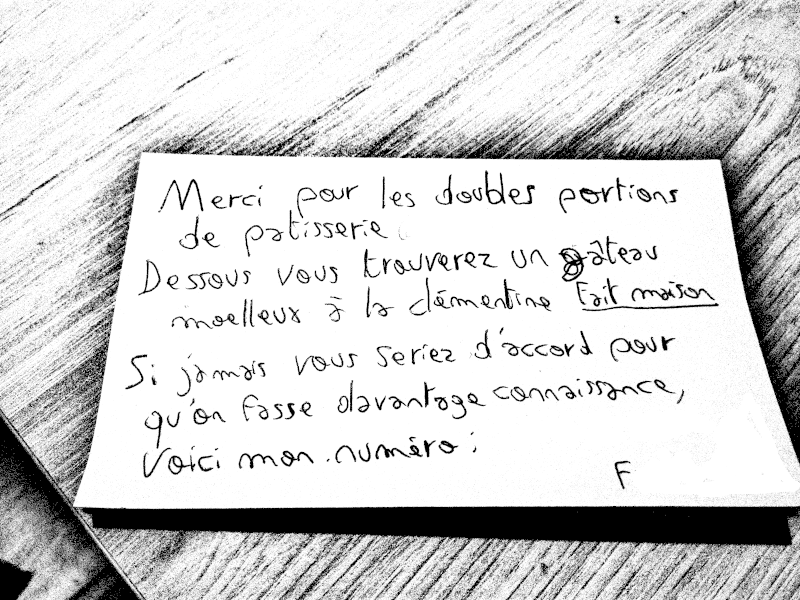 Merci pour les doubles portions
de patisserie
Dessous vous trouverez un gâteau
moelleux à la clémentine fait maison
Si jamais vous seriez d'accord pour
qu'on fasse davantage connaissance,
Voici mon numéro :
F